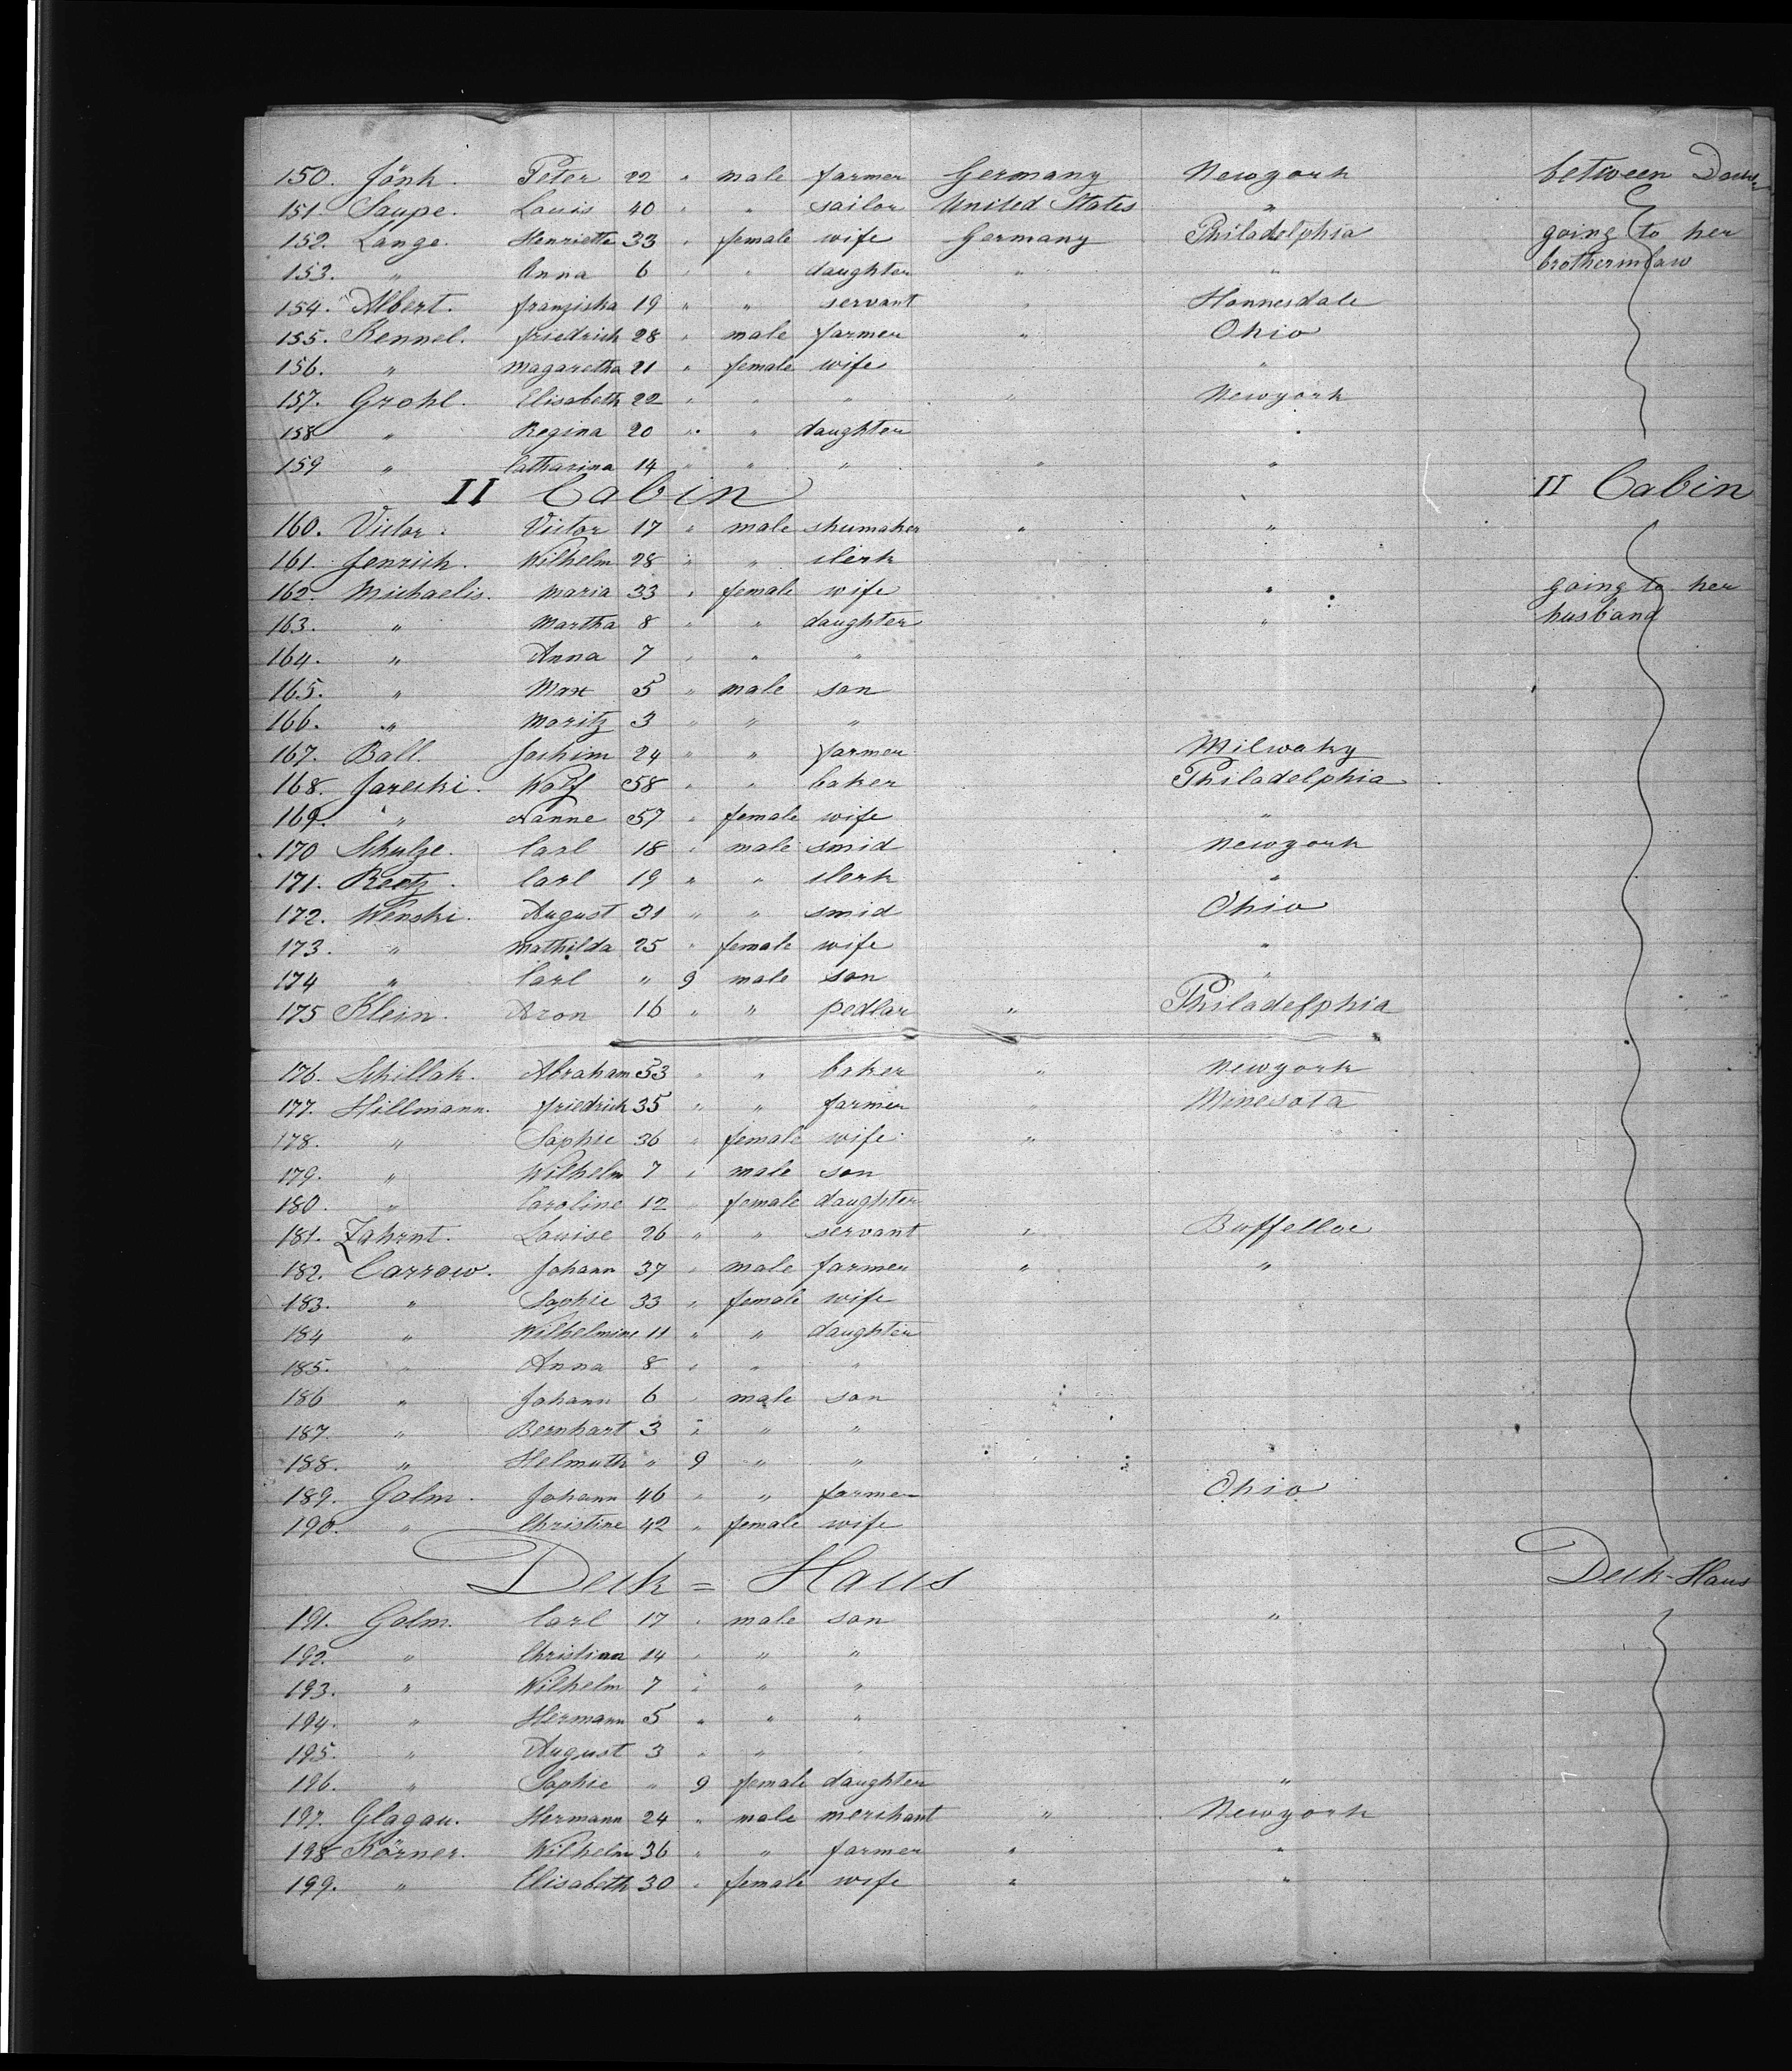 150. Jönk. Peter 22 " male farmer Germany Newyork between Deck
151. Saupe. Louis 40 " " sailor United States "
152. Lange. Henriette 33 " female wife Germany Philadelphia going to her
153. " Anna 6 " " daughter " " brotherinlaw
154. Albert. Franziska 19 " " servant " Honnesdale
155. Kennel. Friedrich 28 " male farmer " Ohio
156. " Magaretha 21 " female wife "
157. Grohl. Elisabeth 22 " " " " Newyork
158 " Regina 20 " " daughter "
159 " Catharina 14 " " " " "
II Cabin II Cabin
160. Victor. Victor 17 " male shumaker " "
161. Jenrich. Wilhelm 28 " " clerk
162. Michaelis. Maria 33 " female wife " going to her
163. " Martha 8 " " daughter " husband
164. " Anna 7 " " "
165. " Max 5 " male son
166. " Moritz 3 " " "
167. Ball. Jochim 24 " " farmer Milwaky
168. Jareski. Wolf 58 " " baker Philadelphia
169. " Nanne 57 " female wife "
170 Schulze. Carl 18 " male smid Newyork
171. Reetz. Carl 19 " " clerk "
172. Wenski. August 31 " " smid Ohio
173. " Mathilda 25 " female wife "
174 " Carl " 9 male son "
175 Klein. Aron 16 " " pedlar " Philadelphia
176. Schillak. Abraham 53 " " baker " Newyork
177. Hillmann. Friedrich 35 " " farmer " Minesota
178. " Sophie 36 " female wife "
179. " Wilhelm 7 " male son
180. " Caroline 12 " female daughter
181. Zahrnt. Louise 26 " " servant " Buffelloe
182. Carrow. Johann 37 " male farmer " "
183. " Sophie 33 " female wife
184 " Wilhelmine 11 " " daughter
185. " Anna 8 " " "
186 " Johann 6 " male son
187. " Bernhart 3 " " "
188. " Helmuth " 9 " "
189. Galm. Johann 46 " " farmer Ohio
190. " Christine 42 " female wife
Deck = Haus Deck-Haus
191. Galm. Carl 17 " male son "
192. " Christian 14 " " "
193. " Wilhelm 7 " " "
194. " Hermann 5 " " "
195. " August 3 " "
196. " Sophie " 9 female daughter "
197. Glagau. Hermann 24 " male merchant " Newyork
198 Körner. Wilhelm 36 " " farmer " "
199. " Elisabeth 30 " female wife " "